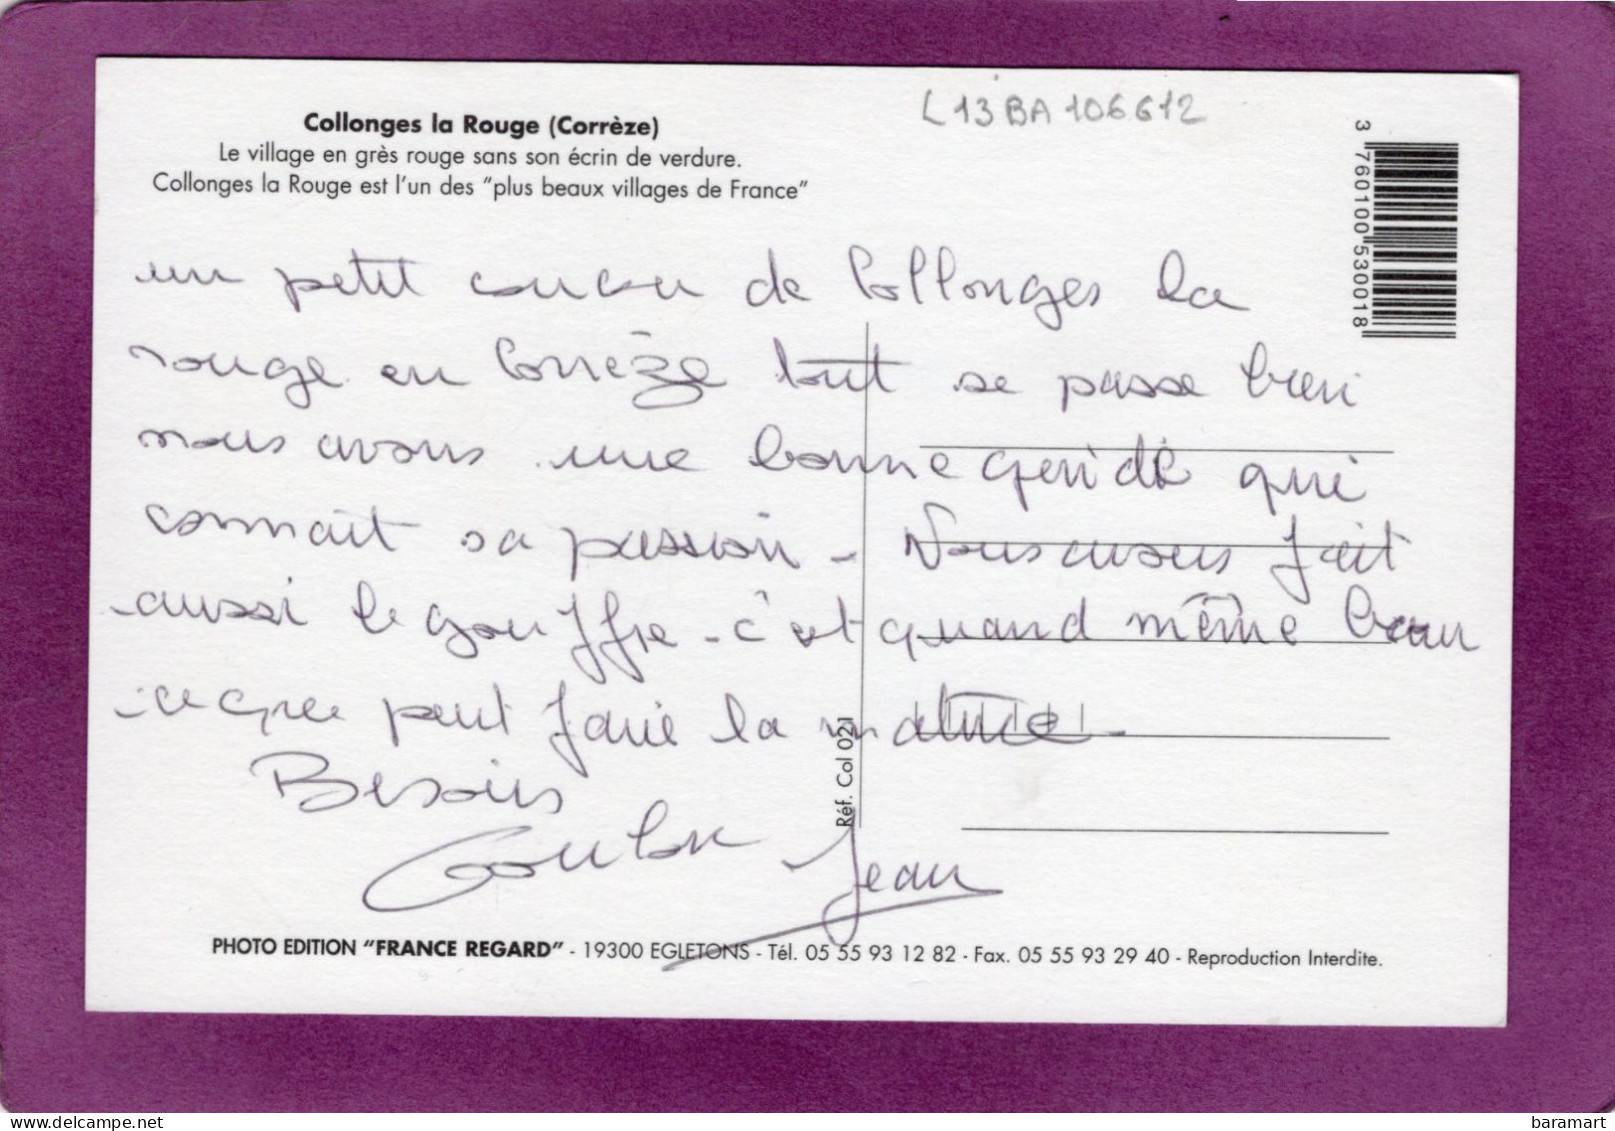 Collonges la Rouge (Corrèze)
Le village en grès rouge sans son écrin de verdure.
Collonges la Rouge est l'un des "plus beaux villages de France"
L13BA106612
3 760100 530018
un petit coucou de Collonges la
rouge en Corrèze tout se passe bien
nous avons une bonne guide qui
connait sa passion - Nous avons fait
aussi le gouffre - c'est quand même beau
ce que peut faire la nature -
Besoins
Coulon Jean
Réf. Col 021
PHOTO EDITION "FRANCE REGARD" - 19300 EGLETONS - Tél. 05 55 93 12 82 - Fax. 05 55 93 29 40 - Reproduction Interdite.
baramart